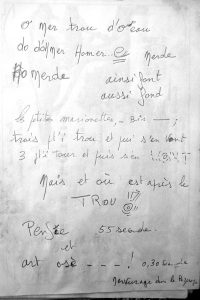 O mer trou d'o eau
do do mer Homer.. e Merde
Homerde ainsi font
aussi fond
les ptites marionettes - Bis - ;
trois ptits trou et puis s'en vont
3 ptit tour et puis s'en
Mais et où est après le
TROU
Penser 55 seconde.
et
art osé - - - - ! 0,30
dans le